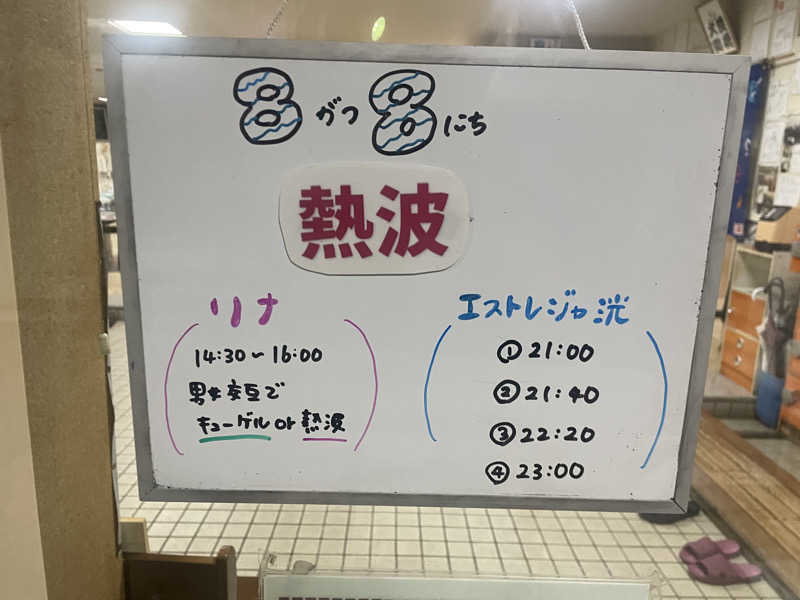 8がつ8にち
熱波
リナ
14:30〜16:00
男女交互で
キューゲルor熱波
エストレジャ洸
①21:00
②21:40
③22:20
④23:00